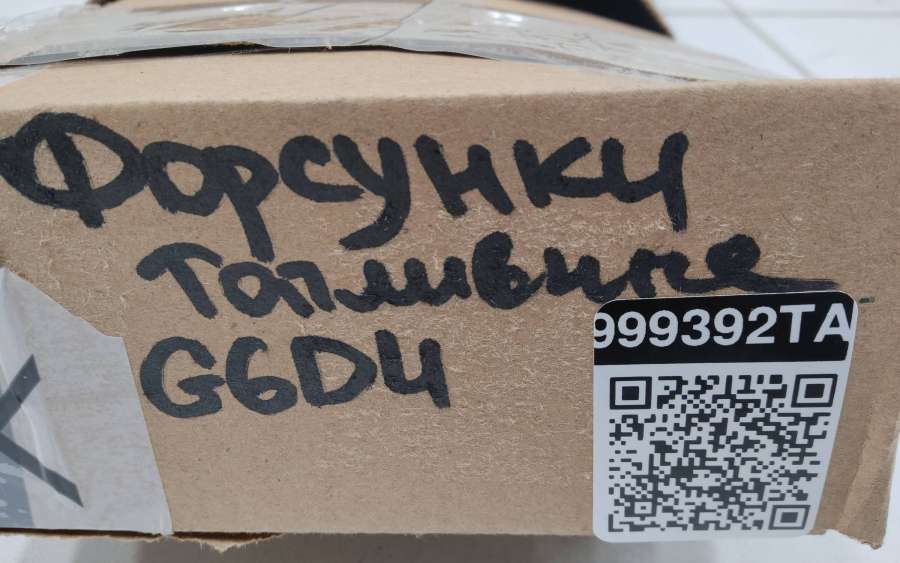 Форсунки
топливные
G6D4
999392TA